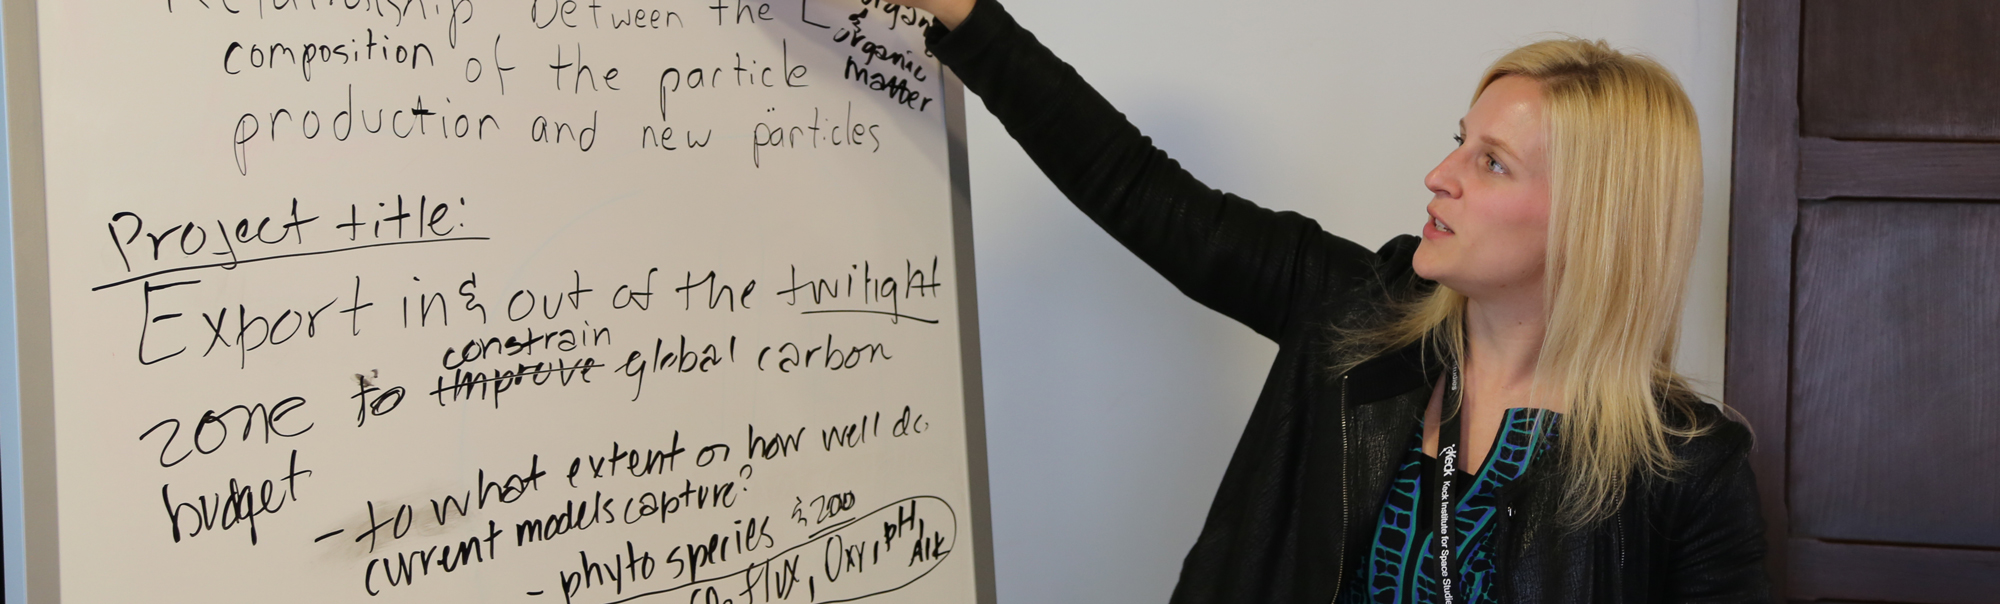 Relationship between the
organic
&
organic
matter
composition of the particle
production and new particles
Project title:
Export in & out of the twilight
zone to constrain improve global carbon
budget
- to what extent or how well do
current models capture?
- phyto species & zoo
flux, Oxy, pH,
Alk
Keck Keck Institute for Space Studies